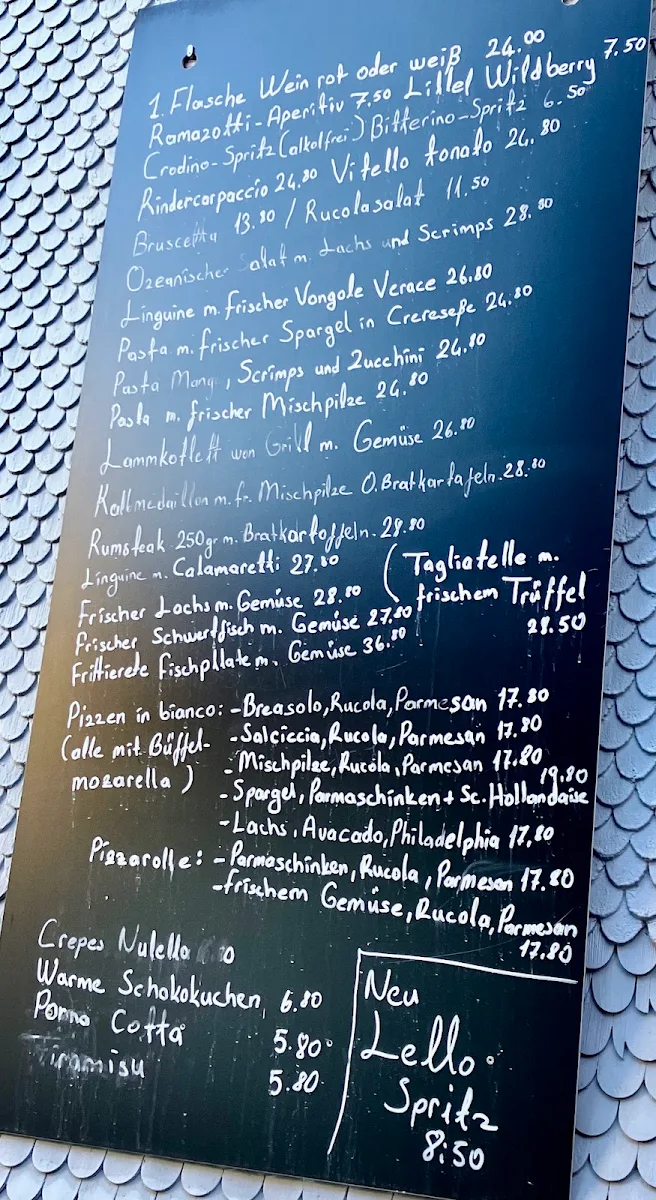 1. Flasche Wein rot oder weiß 24.00
Ramazotti-Aperitiv 7.50 Lillel Wildberry 7.50
Crodino-Spritz (alkolfrei) Bitterino-Spritz 6.50
Rindercarpaccio 24.80 Vitello tonato 24.80
Bruscetta 13.80 / Rucolasalat 11.50
Ozeanischer Salat m. Lachs und Scrimps 28.80
Linguine m. frischer Vongole Verace 26.80
Pasta m. frischer Spargel in Creresoße 24.80
Pasta Mang, Scrimps und Zucchini 24.80
Pasta m. frischer Mischpilze 24.80
Lammkotlett von Grill m. Gemüse 26.80
Kalbmedaillon m. fr. Mischpilze O. Bratkartafeln. 28.80
Rumsteak 250gr m. Bratkartoffeln. 29.80
Linguine m. Calamaretti 27.80
Frischer Lachs m. Gemüse 28.80
Frischer Schwertfisch m. Gemüse 27.80
Frittierete Fischpllate m. Gemüse 36.80
(Tagliatelle m.
frischem Trüffel
28.50
Pizzen in bianco: - Breasolo, Rucola, Parmesan 17.80
(alle mit Büffel- - Salciccia, Rucola, Parmesan 17.80
mozarella) - Mischpilze, Rucola, Parmesan 17.80
- Spargel, Parmaschinken + Sc. Hollandaise 19.80
- Lachs, Avacado, Philadelphia 17,80
Pizzarolle: - Parmaschinken, Rucola, Parmesan 17.80
- frischem Gemüse, Rucola, Parmesan
17.80
Crepes Nulella
Warme Schokokuchen 6.80
Panna Cotta 5.80
Tiramisu 5.80
Neu
Lello
Spritz
8:50